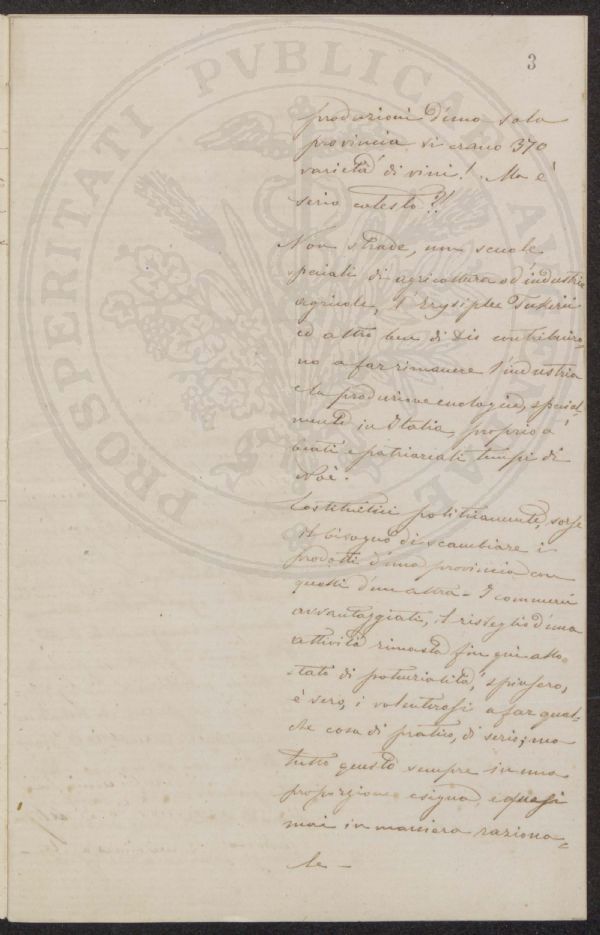 3
produzioni d'una sola
provincia vi erano 370
varietà di vini! Ma è
serio cotesto?!
Non strade, non scuole
speciali di agricoltura od industria
agricole, l'Erysiphe Tukerii
ed altro ben di Dio contribuiro=
no a far rimanere l'industria
e la produzione enologica, special=
mente in Italia, proprio a'
beati e patriarcali tempi di
Noè.
Costituitici politicamente, sorse
il bisogno di scambiare i
prodotti d'una provincia con
quelli d'un altra - I commerci
avvantaggiati, il risveglio d'una
attività rimasta fin qui allo
stato di potenzialità, spinsero,
è vero, i volenterosi a far qual=
che cosa di pratico, di serio; ma
tutto questo sempre in una
proporzione esigua e quasi
mai in maniera raziona=
le -
PROSPERITATI PVBLICAE AVGENDAE